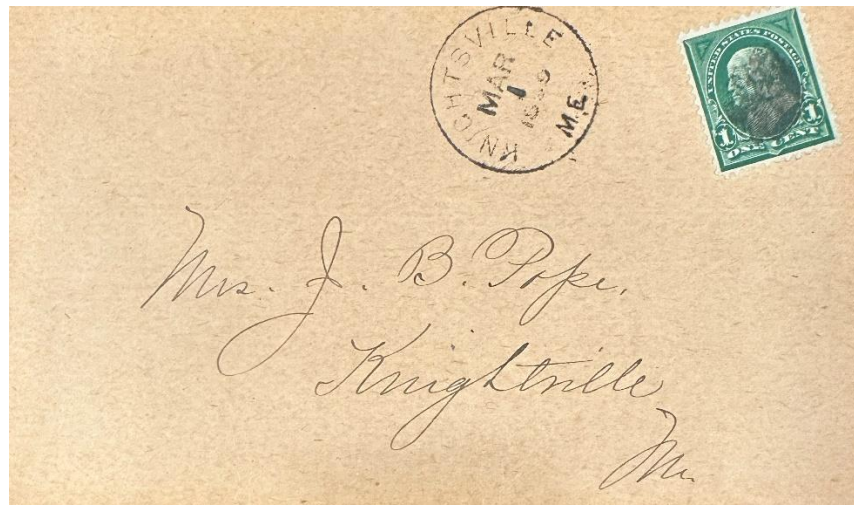 KNIGHTSVILLE
MAR
1
ME.
UNITED STATES POSTAGE
1 1
ONE CENT
Mrs. J. B. Pope,
Knightville
Me.